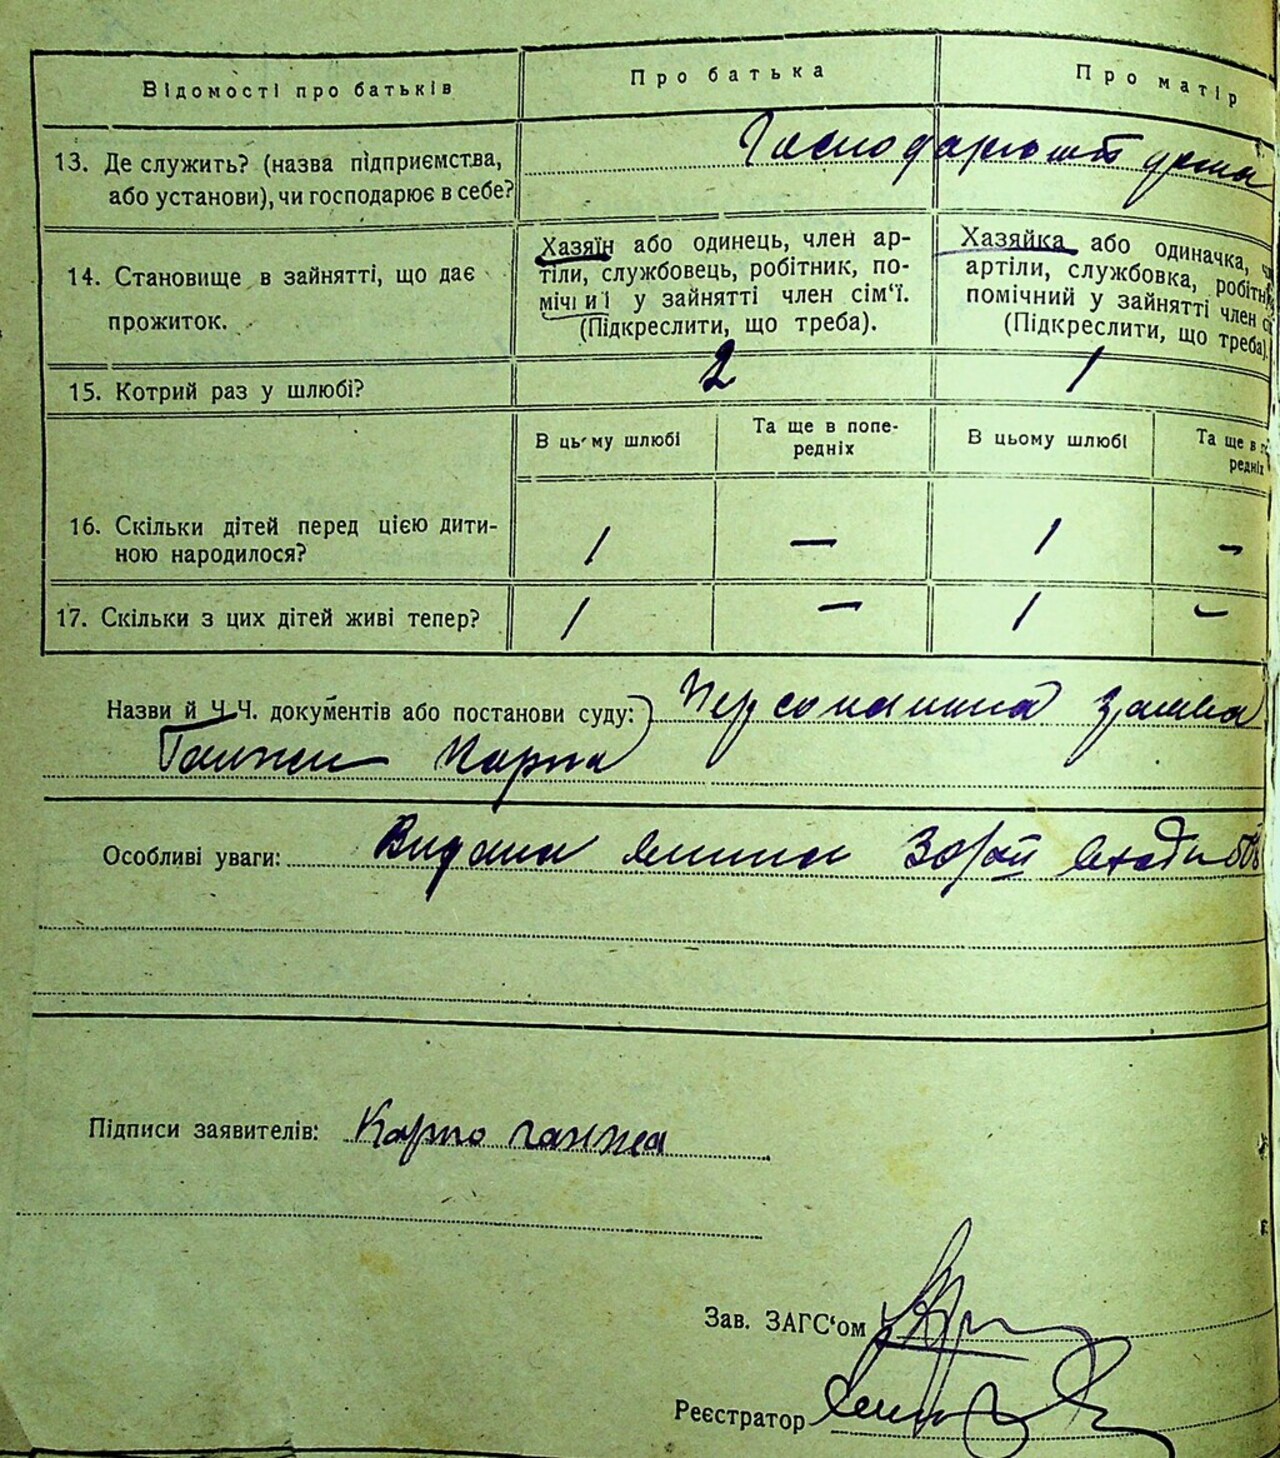 Відомості про батьків
Про батька
Про матір
13. Де служить? (назва підприємства,
або установи), чи господарює в себе?
14. Становище в зайнятті, що дає
прожиток.
Хазяїн або одинець, член ар-
тіли, службовець, робітник, по-
мічниі у зайнятті член сім'ї.
(Підкреслити, що треба).
Хазяйка або одиначка,
артіли, службовка, робітн
помічний у зайнятті член с
(Підкреслити, що треба).
15. Котрий раз у шлюбі?
2
1
В цьому шлюбі
Та ще в попе-
редніх
В цьому шлюбі
Та ще в п
редніх
16. Скільки дітей перед цією дити-
ною народилося?
1
—
1
—
17. Скільки з цих дітей живі тепер?
1
—
1
—
Назви й Ч.Ч. документів або постанови суду: Персональна заява
Ганжи Карпа
Особливі уваги: Видана
Підписи заявителів: Карпо ганжа
Зав. ЗАГС'ом
Реєстратор